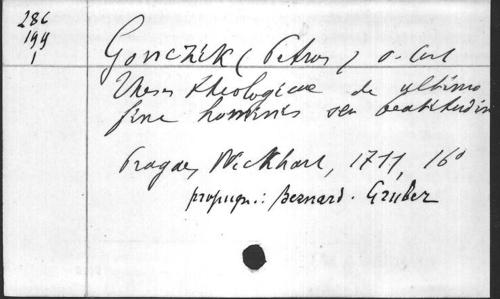 286
199
1
Gonczik (Petrus) o. Cist
Theses theologicae de ultimo
fine hominis seu beatitudin
Pragae, Wickhart, 1711, 16°
propugn.: Bernard. Gruber